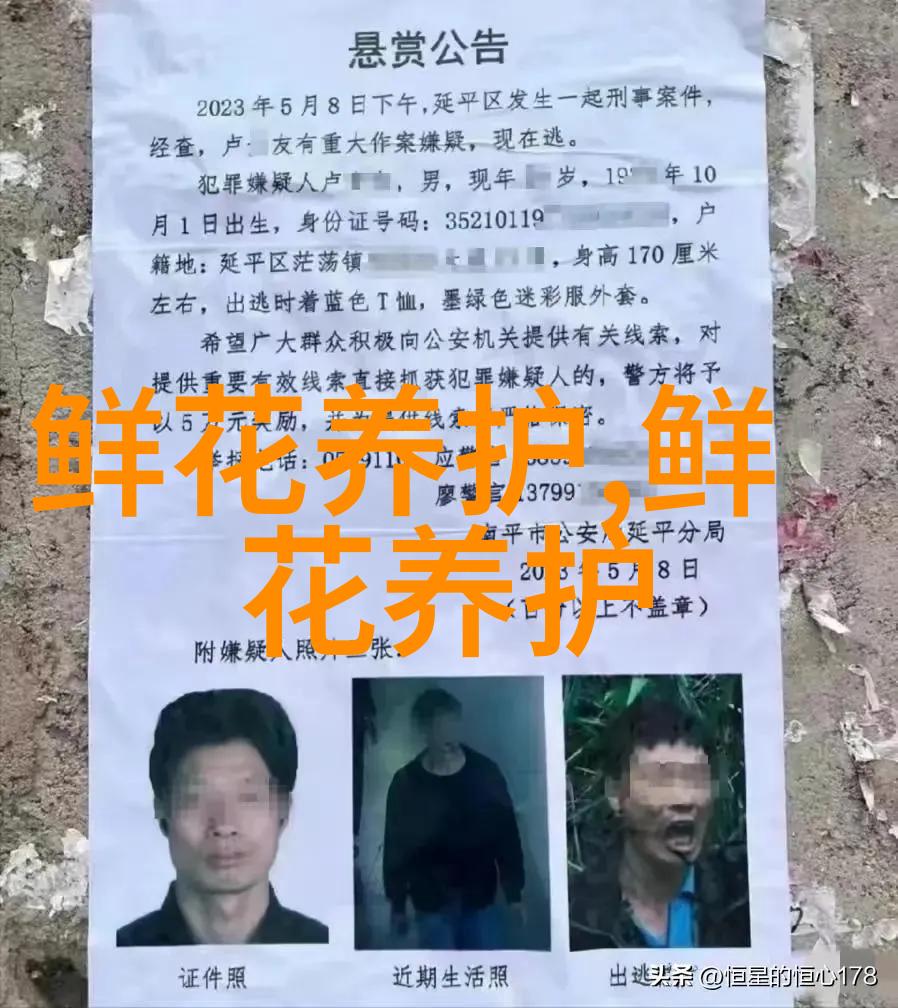 悬赏公告
2023年5月8日下午,延平区发生一起刑事案件,
经查,卢 友有重大作案嫌疑,现在逃。
犯罪嫌疑人卢 ,男,现年 岁,19 年10
月1日出生,身份证号码:35210119 ,户
籍地:延平区茫荡镇 ,身高170厘米
左右,出逃时着蓝色T恤,墨绿色迷彩服外套。
希望广大群众积极向公安机关提供有关线索,对
提供重要有效线索直接抓获犯罪嫌疑人的,警方将予
以5万元奖励,
鲜花养护,鲜
花养护
电话:
廖警官 13799
南平市公安 延平分局
2023年5月8日
不盖章)
附嫌疑人照片三张:
证件照
近期生活照
出逃
头条 @恒星的恒心178